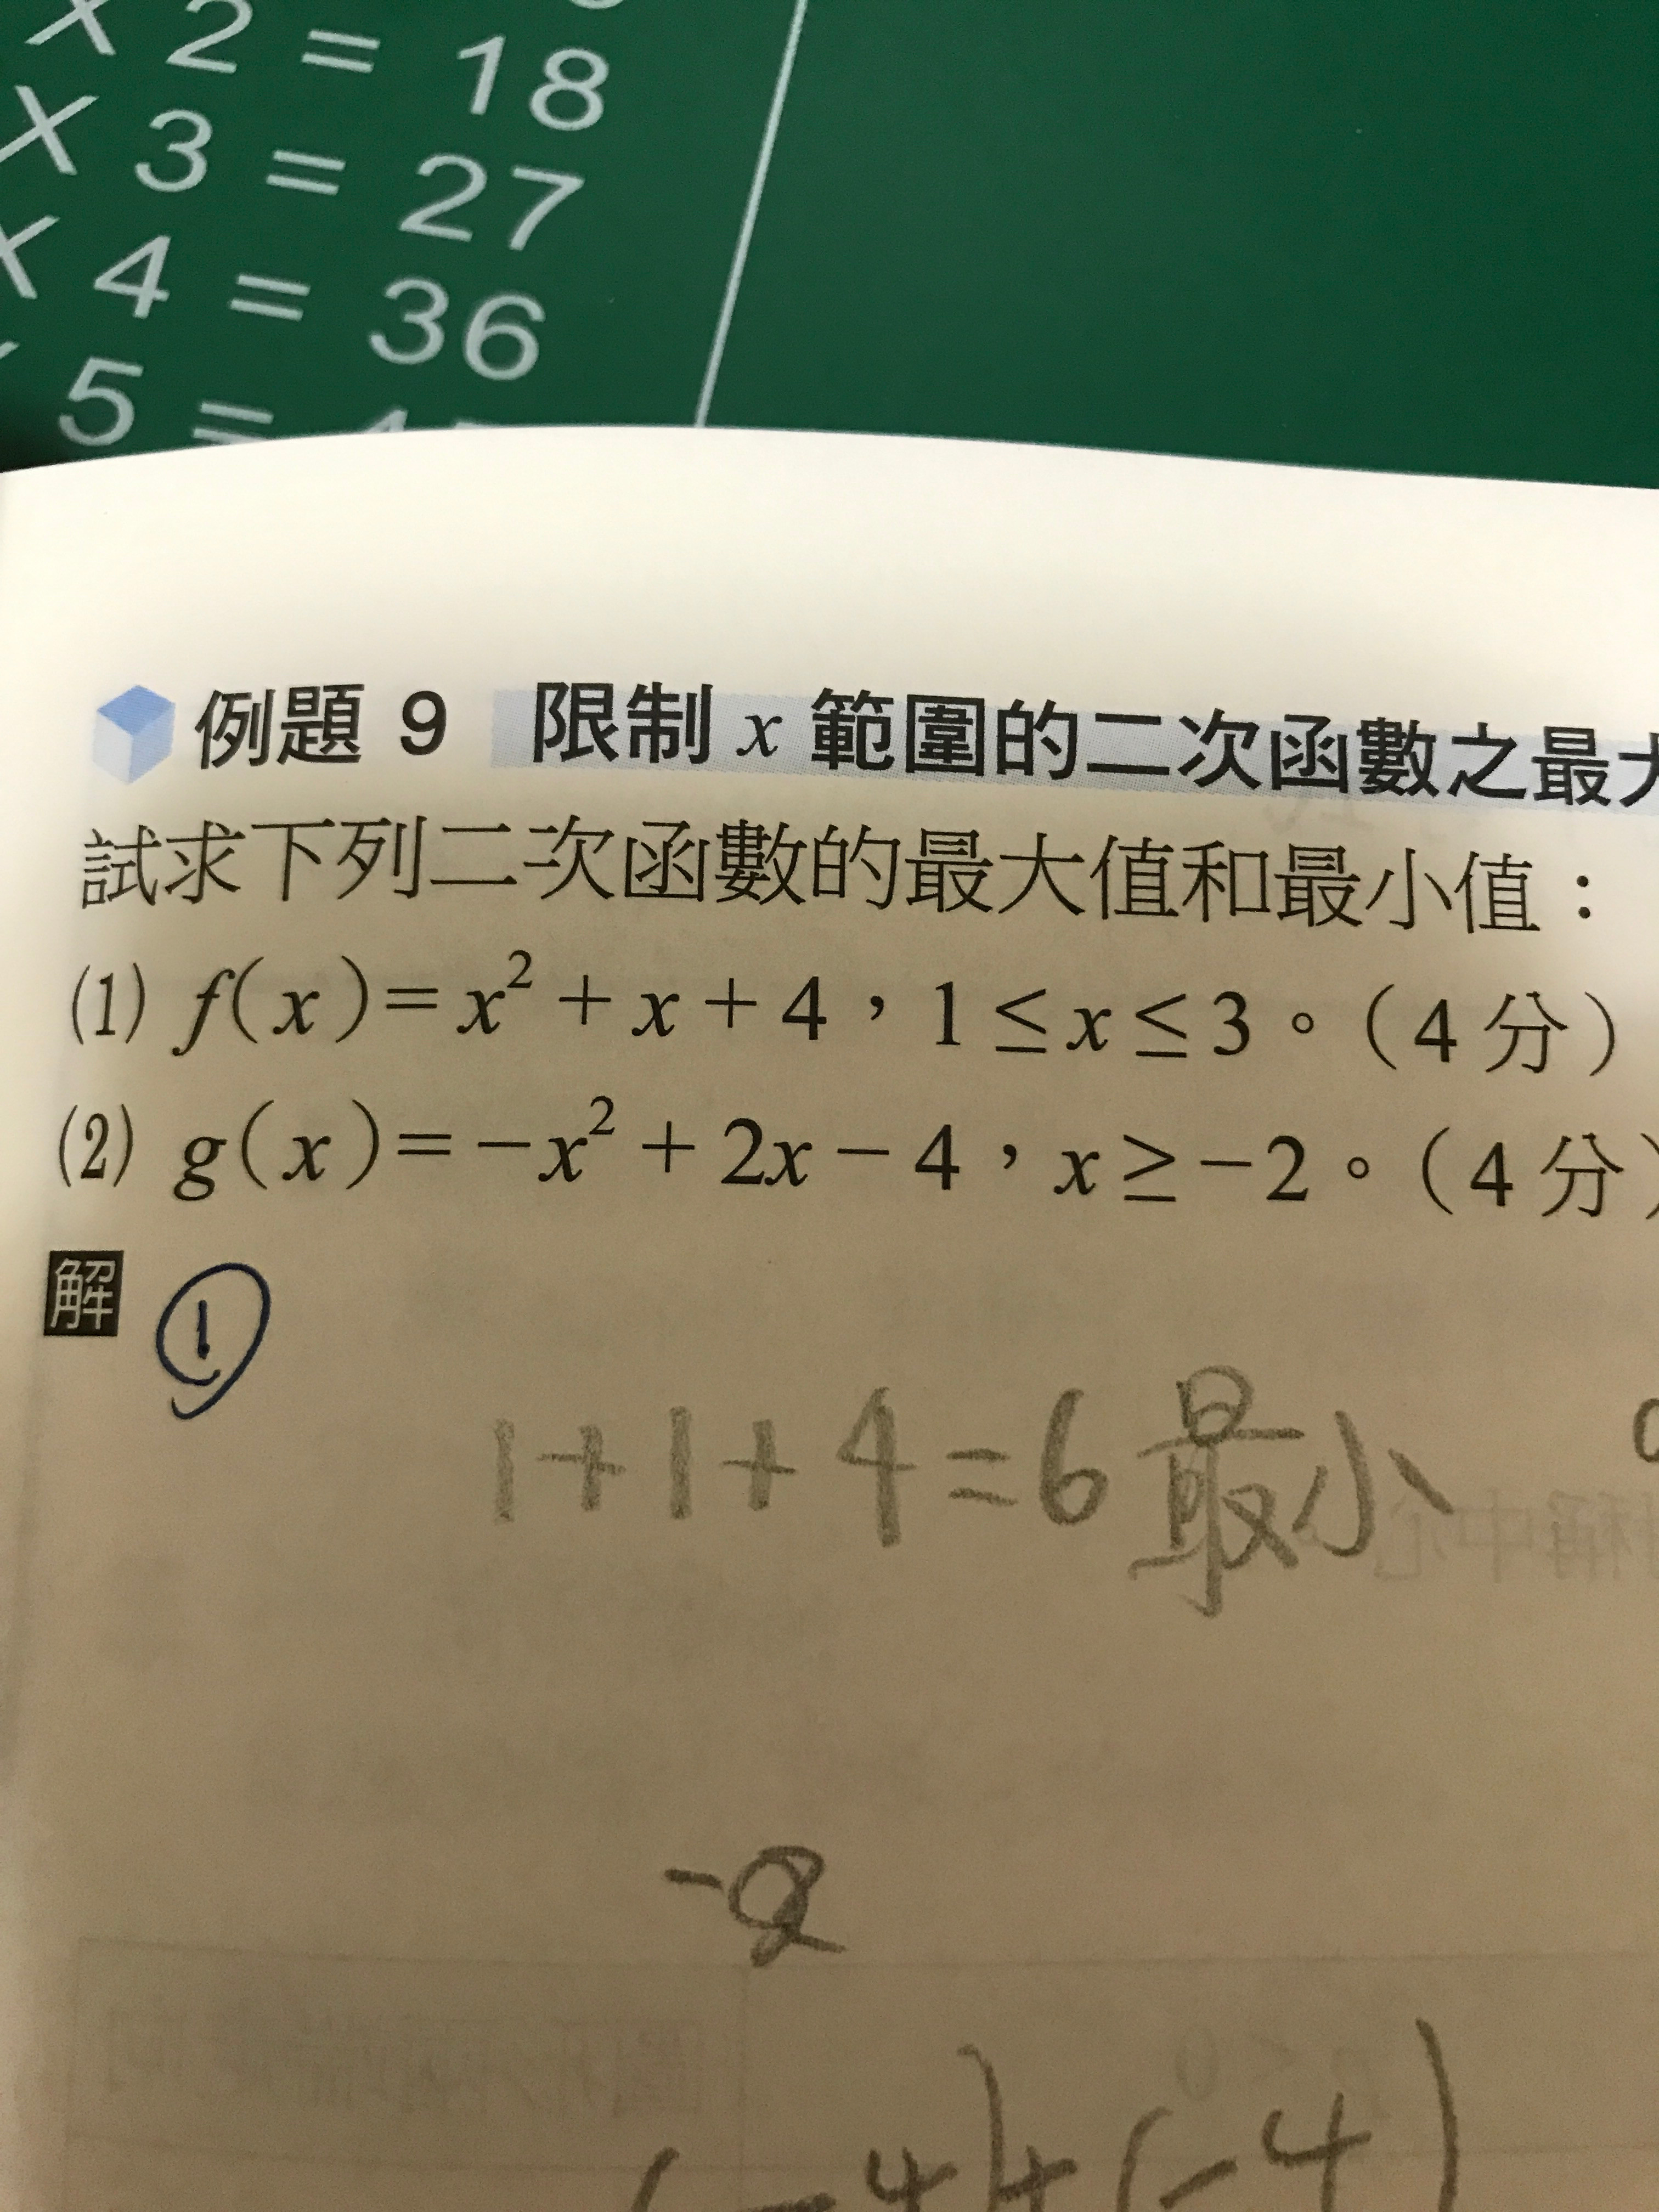 X 2 = 18
X 3 = 27
X 4 = 36
5 =
例題 9 限制 x 範圍的二次函數之最
試求下列二次函數的最大值和最小值：
(1) f(x)=x²+x+4，1≤x≤3。（4分）
(2) g(x)=−x²+2x−4，x≥−2。（4分）
解 ①
1+1+4=6 最小
(-4)+(-4)